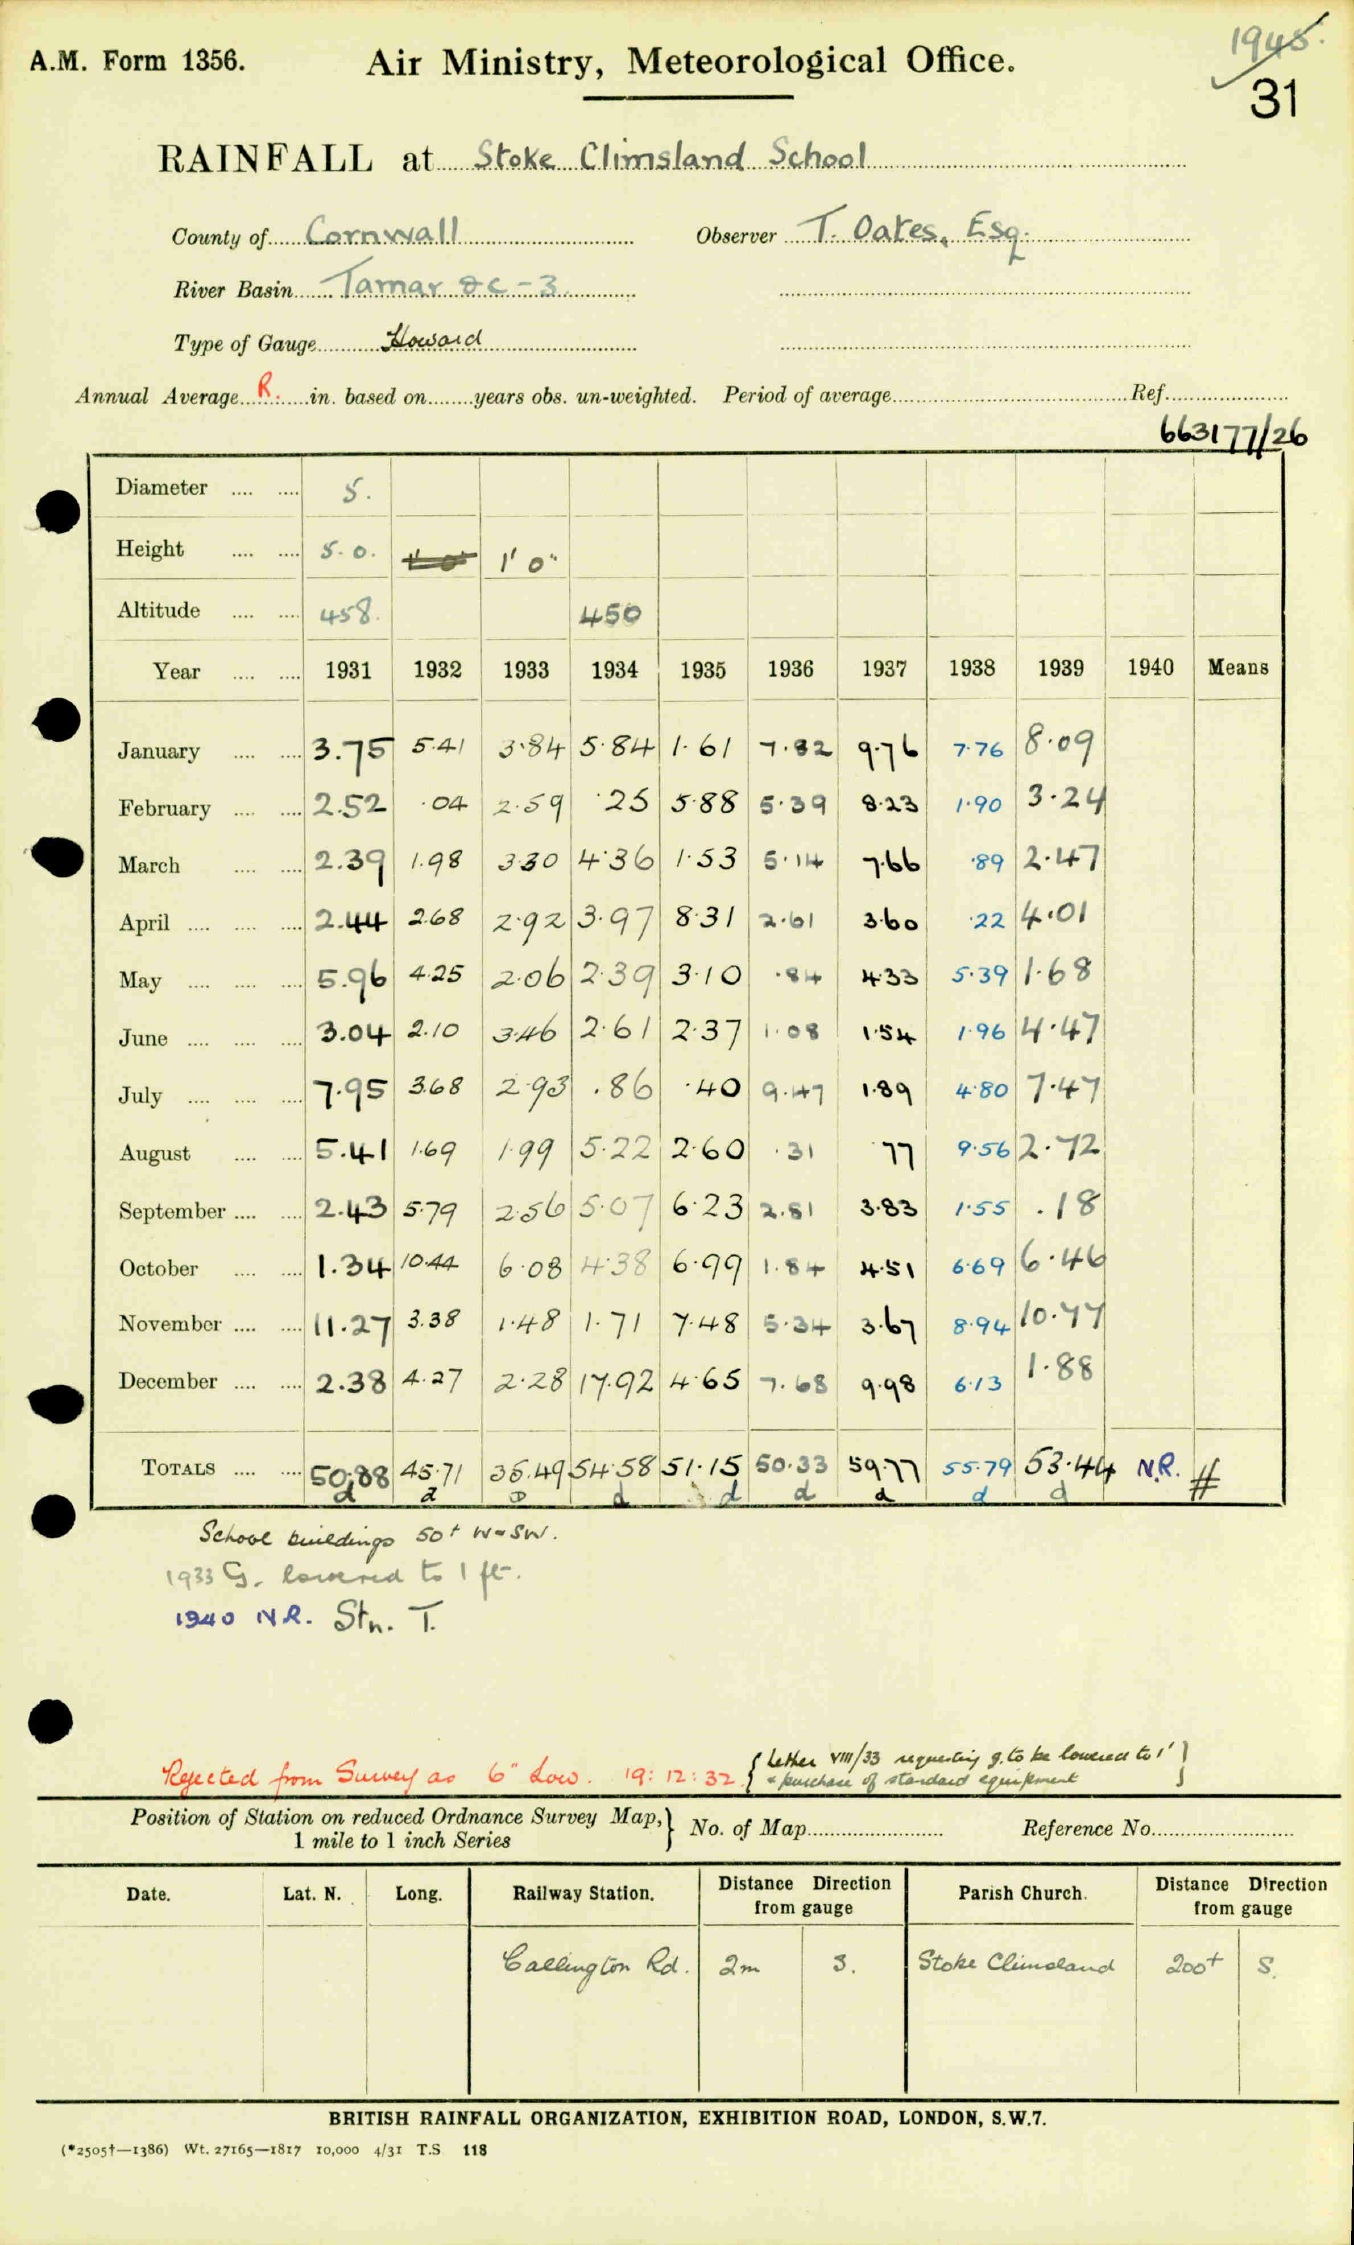 1945.
31
A.M. Form 1356. Air Ministry, Meteorological Office.
RAINFALL at Stoke Climsland School
County of Cornwall Observer T. Oates, Esq.
River Basin Tamar &c - 3
Type of Gauge Howard
Annual Average R. in. based on years obs. un-weighted. Period of average Ref.
663177/26
Diameter 5.
Height 5.0. 1' 0" 1' 0"
Altitude 458. 450
Year 1931 1932 1933 1934 1935 1936 1937 1938 1939 1940 Means
January 3.75 5.41 3.84 5.84 1.61 7.82 9.76 7.76 8.09
February 2.52 .04 2.59 .25 5.88 5.39 8.23 1.90 3.24
March 2.39 1.98 3.30 4.36 1.53 5.14 7.66 .89 2.47
April 2.44 2.68 2.92 3.97 8.31 2.61 3.60 .22 4.01
May 5.96 4.25 2.06 2.39 3.10 .84 4.33 5.39 1.68
June 3.04 2.10 3.46 2.61 2.37 1.08 1.54 1.96 4.47
July 7.95 3.68 2.93 .86 .40 9.47 1.89 4.80 7.47
August 5.41 1.69 1.99 5.22 2.60 .31 .77 9.56 2.72
September 2.43 5.79 2.56 5.07 6.23 2.81 3.83 1.55 .18
October 1.34 10.44 6.08 4.38 6.99 1.84 4.51 6.69 6.46
November 11.27 3.38 1.48 1.71 7.48 5.34 3.67 8.94 10.77
December 2.38 4.27 2.28 17.92 4.65 7.68 9.98 6.13 1.88
TOTALS 50.88 45.71 35.49 54.58 51.15 50.33 59.77 55.79 53.44 N.R. #
d d D d d d d d d
School buildings 50+ W-SW.
1933 G. lowered to 1 ft.
1940 N.R. Stn. T.
Rejected from Survey as 6" Low. 19:12:32 { Letter VIII/33 requesting g. to be lowered to 1' }
& purchase of standard equipment
Position of Station on reduced Ordnance Survey Map, } No. of Map Reference No.
1 mile to 1 inch Series
Date. Lat. N. Long. Railway Station. Distance Direction from gauge Parish Church. Distance Direction from gauge
Callington Rd. 2m S. Stoke Climsland 200+ S.
BRITISH RAINFALL ORGANIZATION, EXHIBITION ROAD, LONDON, S.W.7.
(*2505†—1386) Wt. 27165—1817 10,000 4/31 T.S 118